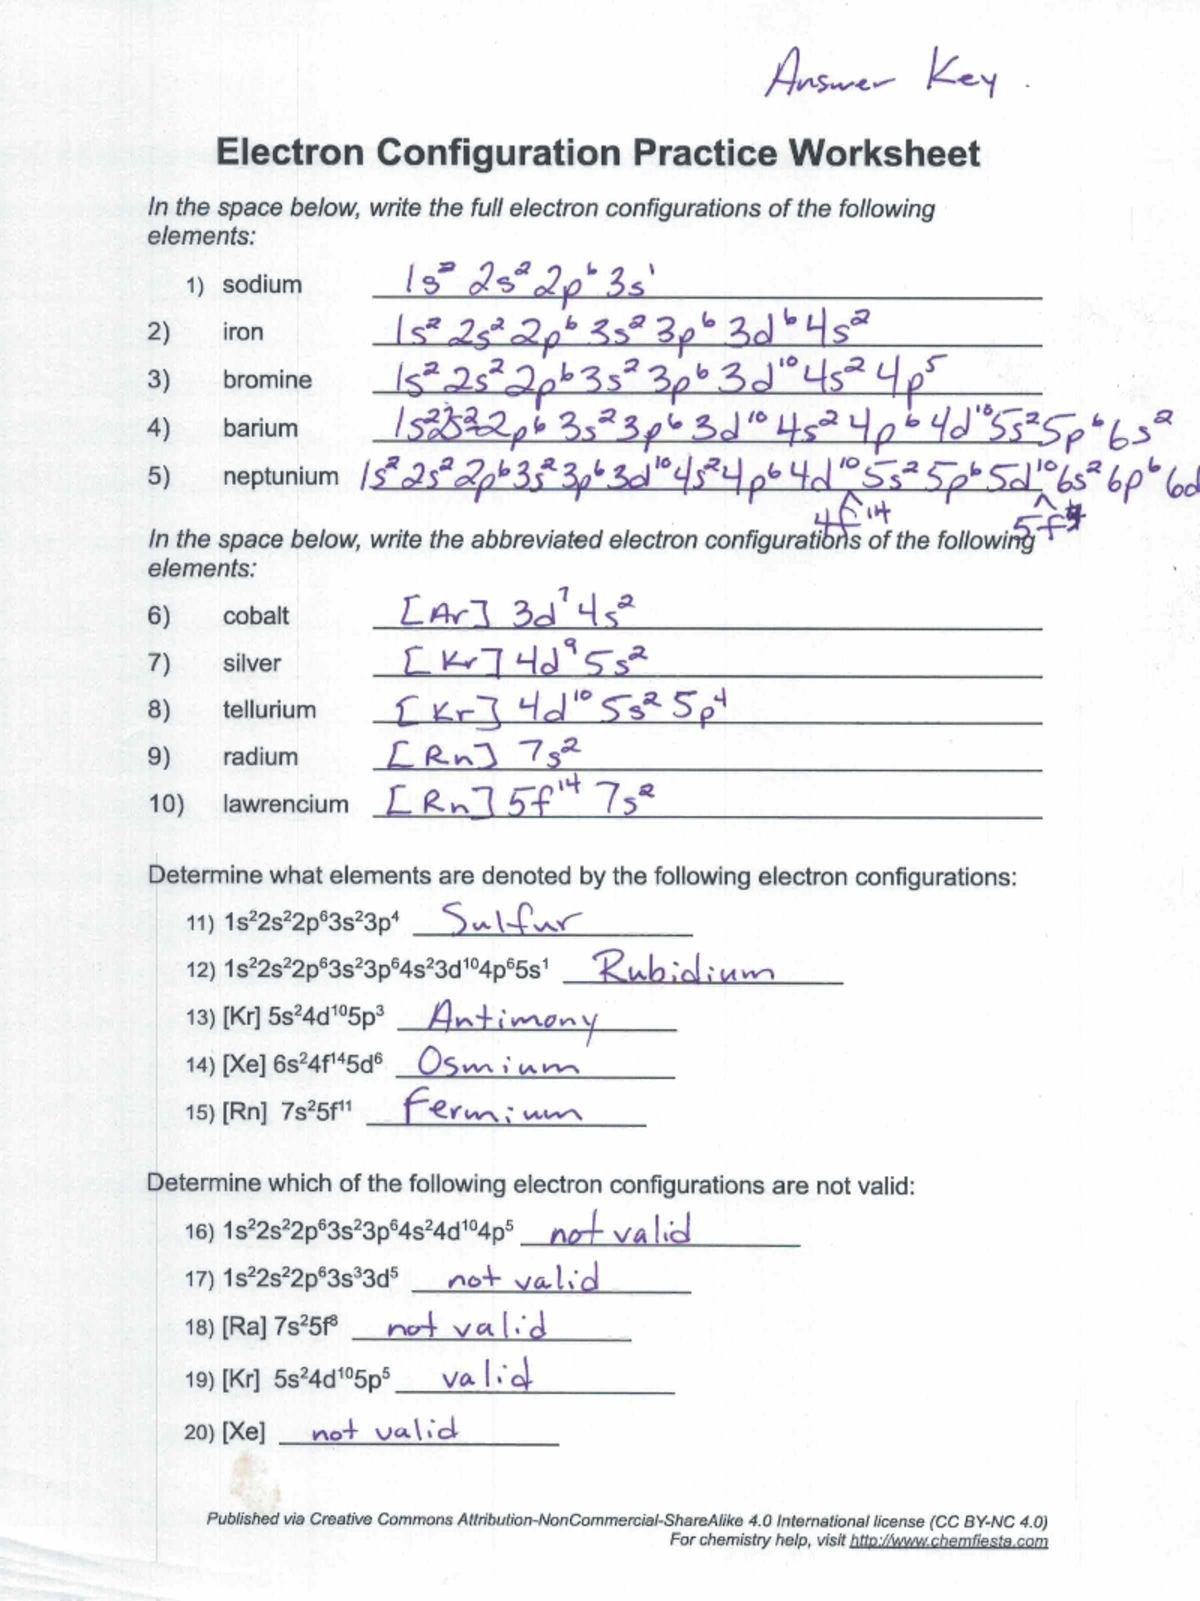 Answer Key
Electron Configuration Practice Worksheet
In the space below, write the full electron configurations of the following
elements:
1) sodium 1s² 2s² 2p⁶ 3s¹
2) iron 1s² 2s² 2p⁶ 3s² 3p⁶ 3d⁶ 4s²
3) bromine 1s² 2s² 2p⁶ 3s² 3p⁶ 3d¹⁰ 4s² 4p⁵
4) barium 1s² 2s² 2p⁶ 3s² 3p⁶ 3d¹⁰ 4s² 4p⁶ 4d¹⁰ 5s² 5p⁶ 6s²
5) neptunium 1s² 2s² 2p⁶ 3s² 3p⁶ 3d¹⁰ 4s² 4p⁶ 4d¹⁰ 5s² 5p⁶ 5d¹⁰ 6s² 6p⁶ 6d
4f¹⁴ 5f
In the space below, write the abbreviated electron configurations of the following
elements:
6) cobalt [Ar] 3d⁷ 4s²
7) silver [Kr] 4d⁹ 5s²
8) tellurium [Kr] 4d¹⁰ 5s² 5p⁴
9) radium [Rn] 7s²
10) lawrencium [Rn] 5f¹⁴ 7s²
Determine what elements are denoted by the following electron configurations:
11) 1s²2s²2p⁶3s²3p⁴ Sulfur
12) 1s²2s²2p⁶3s²3p⁶4s²3d¹⁰4p⁶5s¹ Rubidium
13) [Kr] 5s²4d¹⁰5p³ Antimony
14) [Xe] 6s²4f¹⁴5d⁶ Osmium
15) [Rn] 7s²5f¹¹ Fermium
Determine which of the following electron configurations are not valid:
16) 1s²2s²2p⁶3s²3p⁶4s²4d¹⁰4p⁵ not valid
17) 1s²2s²2p⁶3s³3d⁵ not valid
18) [Ra] 7s²5f⁸ not valid
19) [Kr] 5s²4d¹⁰5p⁵ valid
20) [Xe] not valid
Published via Creative Commons Attribution-NonCommercial-ShareAlike 4.0 International license (CC BY-NC 4.0)
For chemistry help, visit http://www.chemfiesta.com